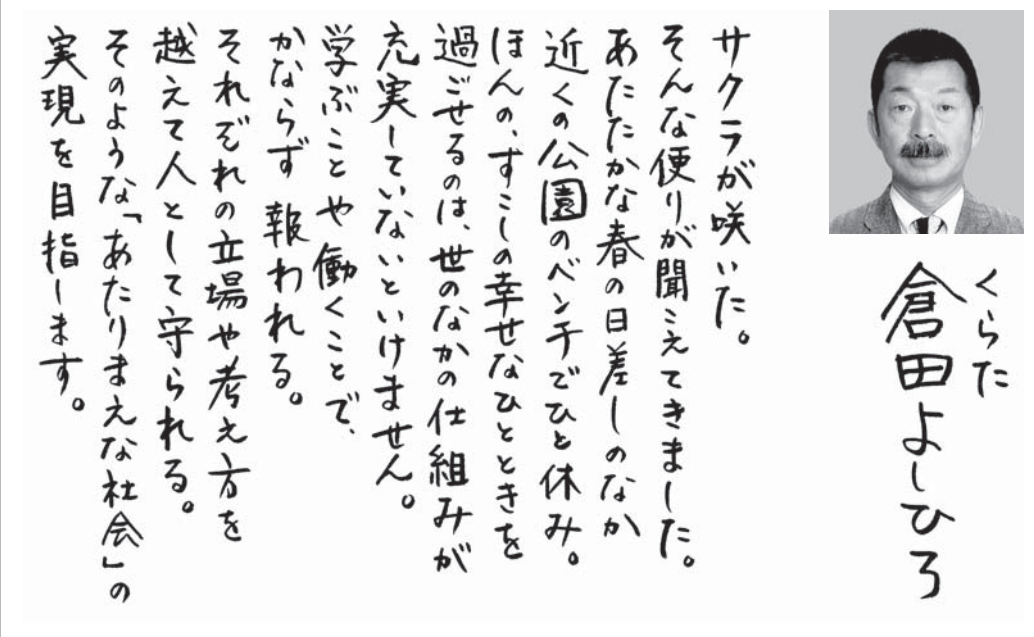 くらた
倉田よしひろ
サクラが咲いた。
そんな便りが聞こえてきました。
あたたかな春の日差しのなか
近くの公園のベンチでひと休み。
ほんの、すこしの幸せなひとときを
過ごせるのは、世のなかの仕組みが
充実していないといけません。
学ぶことや働くことで、
かならず報われる。
それぞれの立場や考え方を
越えて人として守られる。
そのような「あたりまえな社会」の
実現を目指します。